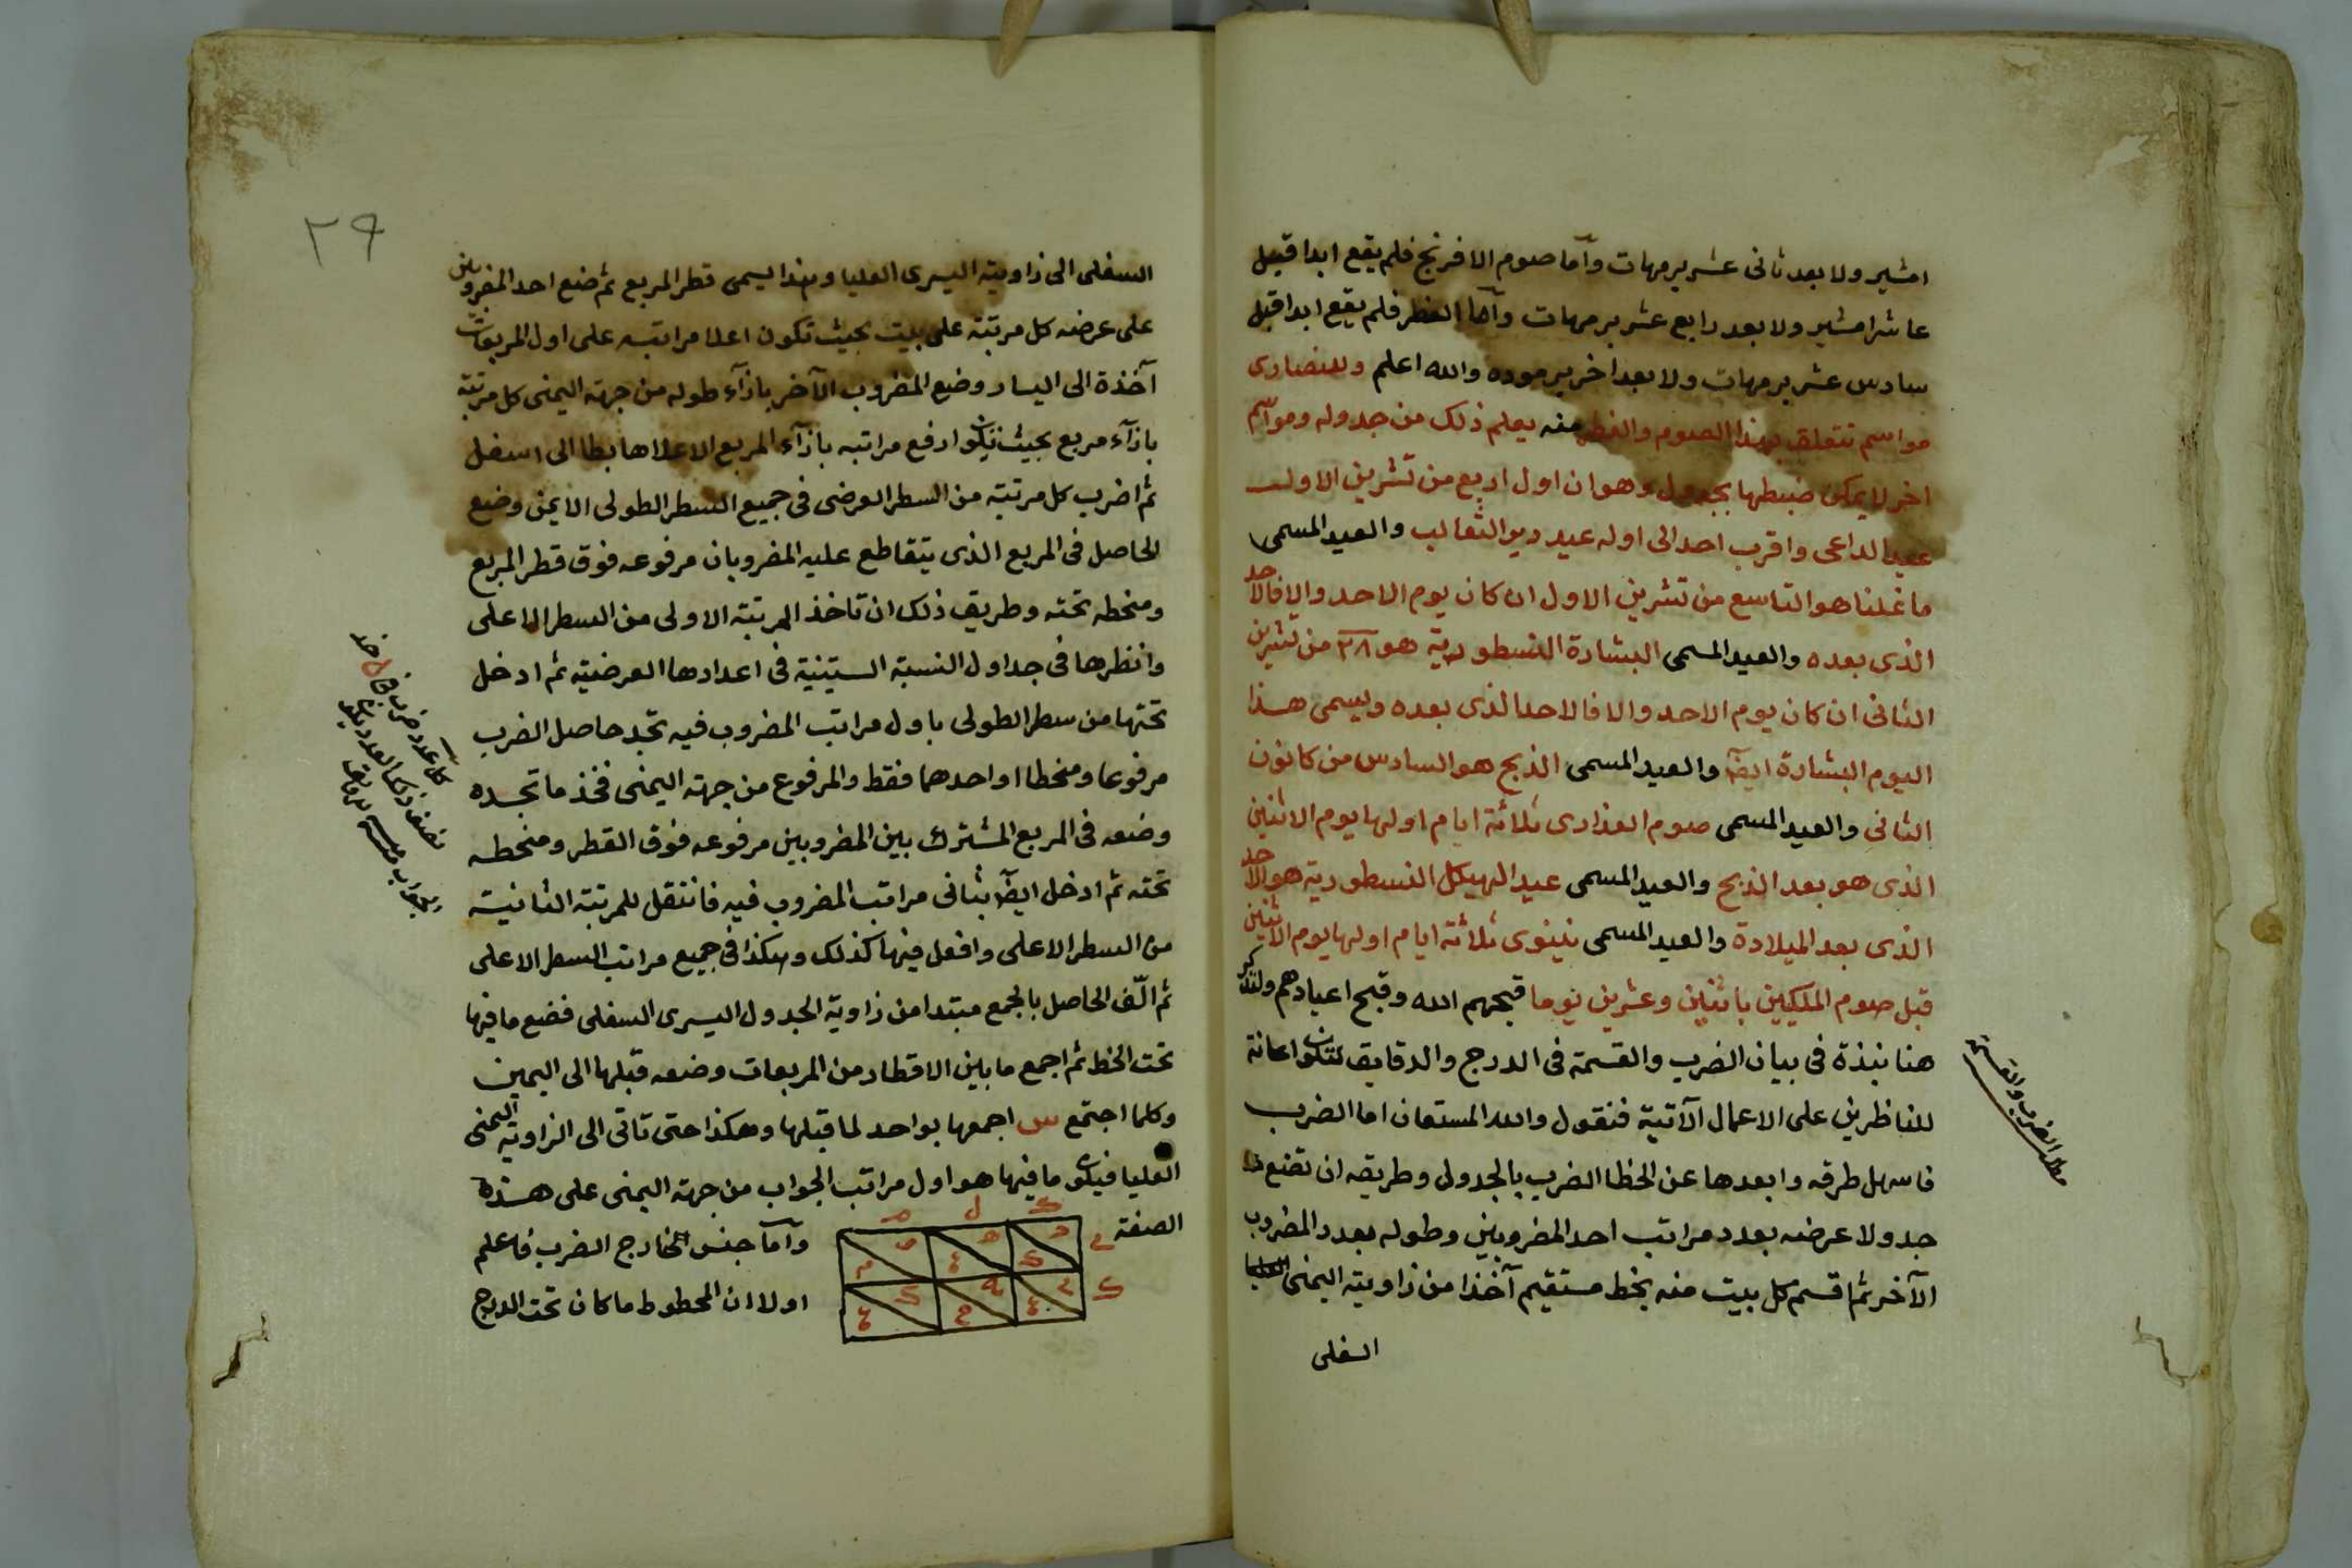 امشير ولا بعد ثانى عشر برمهات وآما صوم الافرنج فلم يقع ابدا قبل
عاشر امشير ولا بعد رابع عشر برمهات وآما الفطر فلم يقع ابدا قبل
سادس عشر برمهات ولا بعد اخر برموده والله اعلم وللنصارى
مواسم تتعلق بهذا الصوم والفطر منه يعلم ذلك من جدوله ومواسم
اخر لا يمكن ضبطها بجدول وهو ان اول اربع من تشرين الاول
عيد الداعى واقرب احد الى اوله عيد ديو الثعالب والعيد المسمى
ما غلنا هو التاسع من تشرين الاول ان كان يوم الاحد والا فالاحد
الذى بعده والعيد المسمى البشارة النسطورية هو من تشرين
الثانى ان كان يوم الاحد والا فالاحد الذى بعده ويسمى هذا
اليوم البشارة ايضا والعيد المسمى الذبح هو السادس من كانون
الثانى والعيد المسمى صوم العذارى ثلاثة ايام اولها يوم الاثنين
الذى هو بعد الذبح والعيد المسمى عيد الهيكل النسطورية هو الاحد
الذى بعد الميلادة والعيد المسمى نينوى ثلاثة ايام اولها يوم الاثنين
قبل صوم الملكيين باثنين وعشرين يوما قبحهم الله وقبح اعيادهم ولنذكر
هنا نبذة فى بيان الضرب والقسمة فى الدرج والدقايق لتكون اعانة
للناظرين على الاعمال الآتية فنقول والله المستعان اما الضرب
فاسهل طرقه وابعدها عن الخطا الضرب بالجدول وطريقه ان تضع
جدولا عرضه بعدد مراتب احد المضروبين وطوله بعدد المضروب
الآخر ثم اقسم كل بيت منه بخط مستقيم آخذا من زاويته اليمنى
السفلى
الضرب والقسمة
٢٩
السفلى الى زاويته اليسرى العليا وهذا يسمى قطر المربع ثم ضع احد المضروبين
على عرضه كل مرتبة على بيت بحيث تكون اعلا مراتبه على اول المربعات
آخذة الى اليسار وضع المضروب الآخر بازآء طوله من جهته اليمنى كل مرتبة
بازآء مربع بحيث يكون ارفع مراتبه بازآء المربع الاعلا هابطا الى اسفل
ثم اضرب كل مرتبة من السطر العرضى فى جميع السطر الطولى الايمن وضع
الحاصل فى المربع الذى يتقاطع عليه المضروبان مرفوعه فوق قطر المربع
ومنحطه تحته وطريق ذلك ان تاخذ المرتبة الاولى من السطر الاعلى
وانظرها فى جداول النسبة الستينية فى اعدادها العرضية ثم ادخل
تحتها من سطر الطولى باول مراتب المضروب فيه تجد حاصل الضرب
مرفوعا ومنحطا او احدهما فقط والمرفوع من جهته اليمنى فخذ ما تجده
وضعه فى المربع المشترك بين المضروبين مرفوعه فوق القطر ومنحطه
تحته ثم ادخل ايضا بثانى مراتب المضروب فيه فانتقل للمرتبة الثانية
من السطر الاعلى وافعل فيها كذلك وهكذا فى جميع مراتب السطر الاعلى
ثم الّف الحاصل بالجمع مبتدا من زاوية الجدول اليسرى السفلى فضع ما فيها
تحت الخط ثم اجمع ما بين الاقطار من المربعات وضعه قبلها الى اليمين
وكلما اجتمع س اجمعها بواحد لما قبلها وهكذا حتى تاتى الى الزاوية اليمنى
العليا فيكون ما فيها هو اول مراتب الجواب من جهته اليمنى على هذه
الصفة
وآما جنس الخارج الضرب فاعلم
اولا ان المحطوط ما كان تحت الدرج